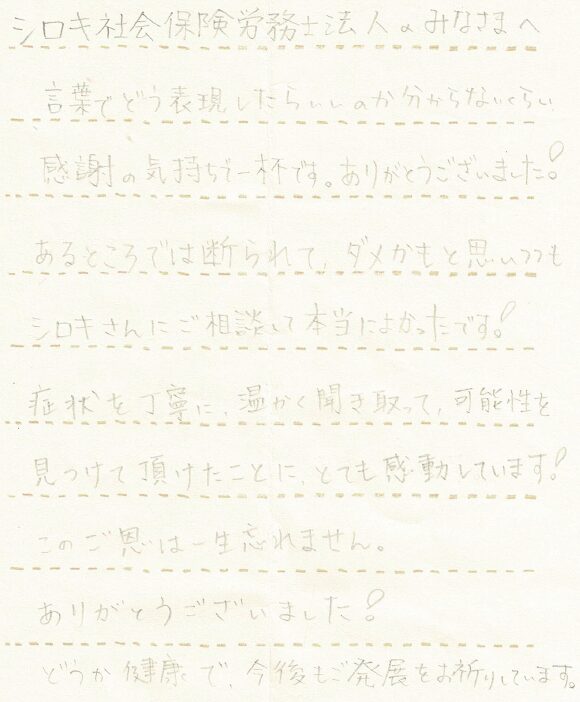 シロキ社会保険労務士法人のみなさまへ
言葉でどう表現したらいいのか分からないくらい
感謝の気持ちで一杯です。ありがとうございました!
あるところでは断られて、ダメかもと思いつつも
シロキさんにご相談して本当によかったです!
症状を丁寧に、温かく聞き取って、可能性を
見つけて頂けたことに、とても感動しています!
このご恩は一生忘れません。
ありがとうございました!
どうか健康で、今後もご発展をお祈りしています。